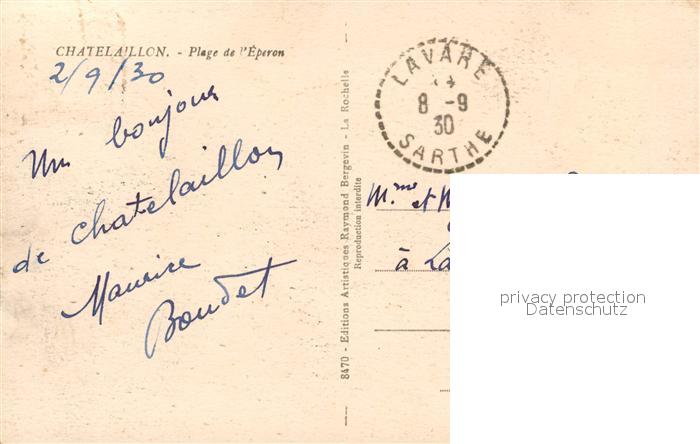 CHATELAILLON. - Plage de l'Éperon
2/9/30
Un bonjour
de chatelaillon
Maurice
Boudet
8470 - Editions Artistiques Raymond Bergevin - La Rochelle
Reproduction interdite
LAVARÉ
8 -9
30
SARTHE
M.me et
à La
privacy protection
Datenschutz